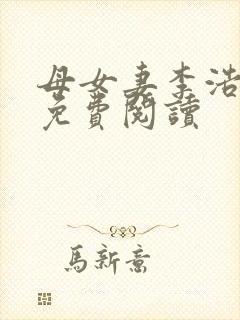 母女妻李浩
免費閱讀
馬新意